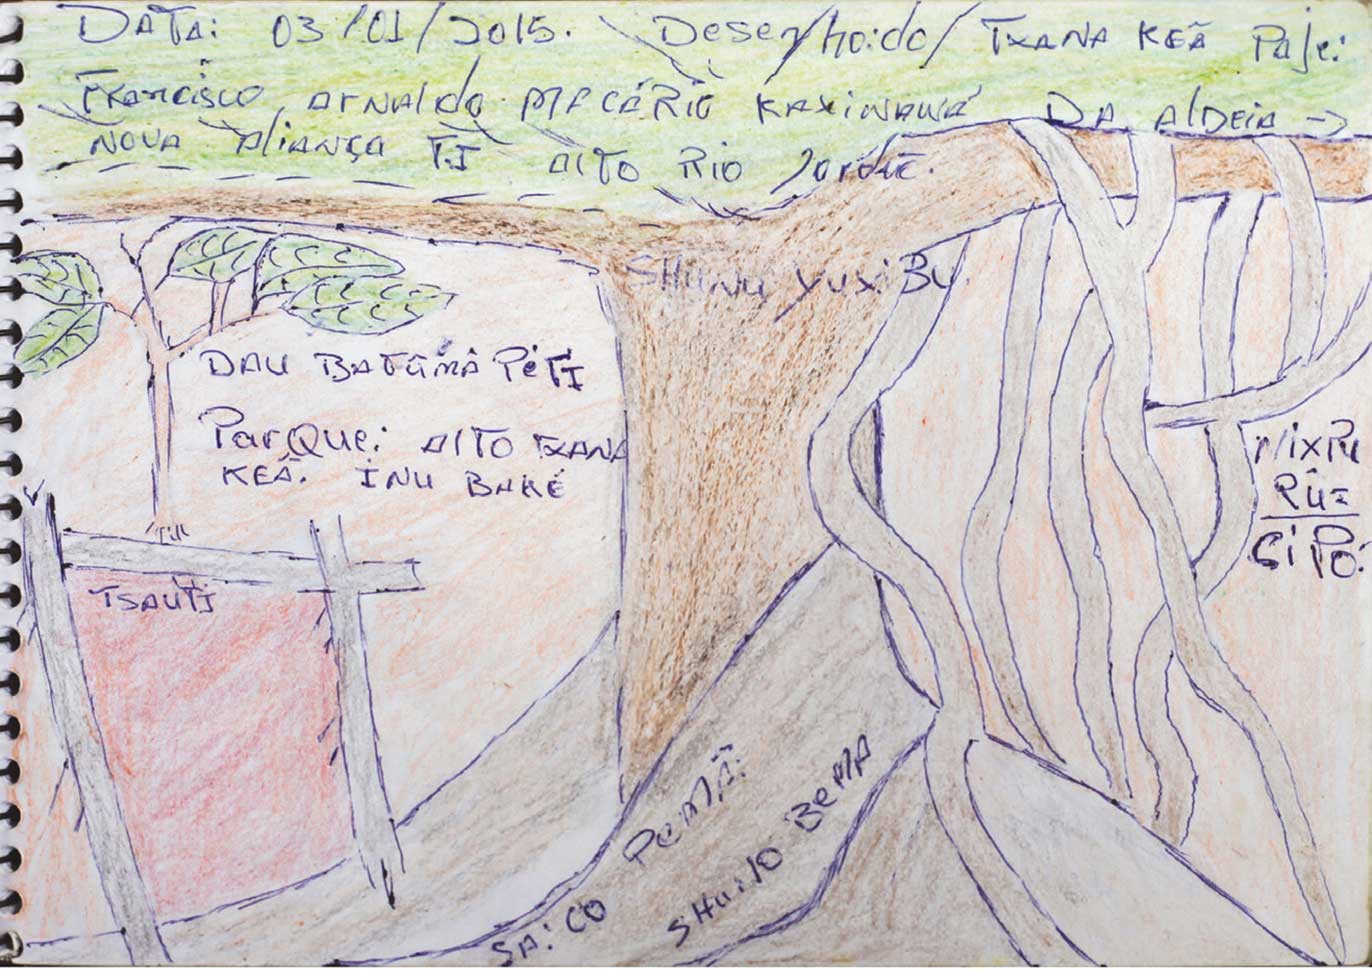 DATA: 03/01/2015. Desenho:do/ TXANA KEÃ Paje:
Francisco ARNALdo MACÁRIO KAXINAWÁ DA ALDEIA →
NOVA ALIANÇA TI ALTO RIO
SHUNU YUXiBU
DAU BATŨMÃ PÉTI
ParQue: ALTO TXANA
KEÃ. INU BAKÉ
TSAUTI
NiXPU
RŨI
CiPÓ:
SHUNO BEMA